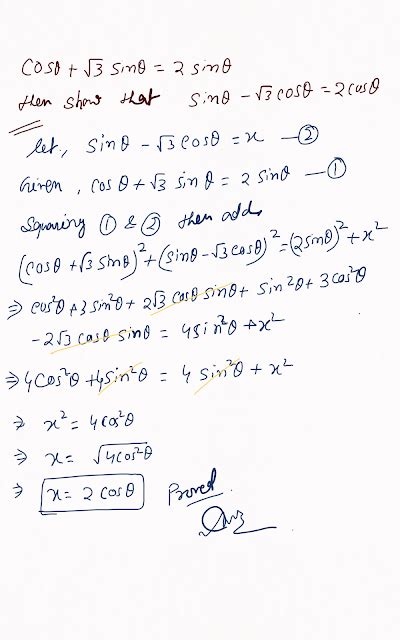 cosθ + √3 sinθ = 2 sinθ
then show that sinθ - √3 cosθ = 2 cosθ
let, sinθ - √3 cosθ = x — ②
Given, cosθ + √3 sinθ = 2 sinθ — ①
Squaring ① & ② then adds
(cosθ + √3 sinθ)² + (sinθ - √3 cosθ)² = (2 sinθ)² + x²
⇒ cos²θ + 3 sin²θ + 2√3 cosθ sinθ + sin²θ + 3 cos²θ
- 2√3 cosθ sinθ = 4 sin²θ + x²
⇒ 4 cos²θ + 4 sin²θ = 4 sin²θ + x²
⇒ x² = 4 cos²θ
⇒ x = √4cos²θ
⇒ x = 2 cosθ Proved.